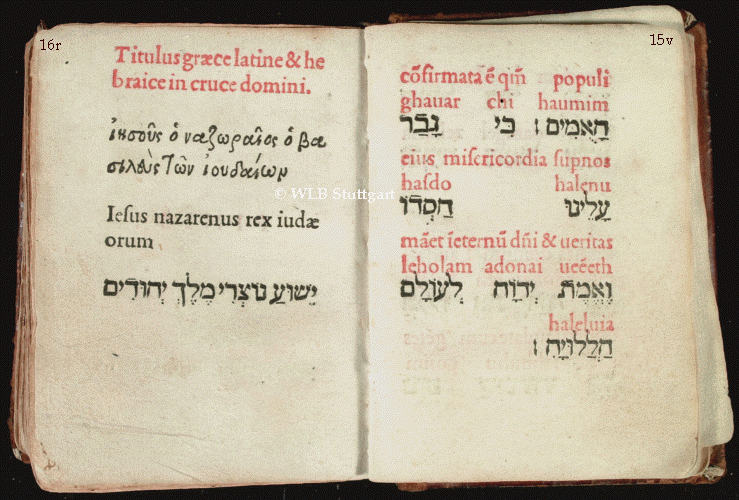 15v
cõfirmata ẽ qm̃ populi
ghauar chi haumim
הָאֻמִים ׃ כִּי גָבַר
eius misericordia supnos
hasdo halenu
עָלֵינוּ חַסְדּוֹ
mãet ĩeternũ dñi & ueritas
leholam adonai ueéeth
וֶאֱמֶת יְהֹוָה לְעוֹלָם
haleluia
הַלֲלוּיָהּ ׃
16r
Titulus græce latine & he
braice in cruce domini.
ἰησοῦς ὁ ναζωραῖος ὁ βα
σιλεὺς τῶν ἰουδαίων
Iesus nazarenus rex iudæ
orum
יֵשׁוּעַ נוֹצְרִי מֶלֶךְ יְהוּדִים
© WLB Stuttgart